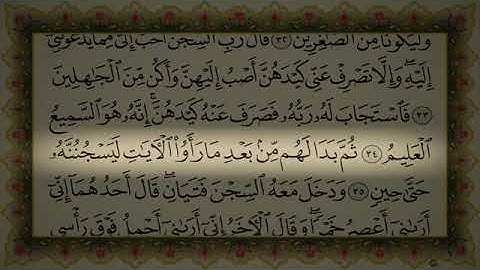 وَلَيَكُونًا مِنَ الصَّٰغِرِينَ ﴿٣٢﴾ قَالَ رَبِّ السِّجْنُ أَحَبُّ إِلَىَّ مِمَّا يَدْعُونَنِى
إِلَيْهِ ۖ وَإِلَّا تَصْرِفْ عَنِّى كَيْدَهُنَّ أَصْبُ إِلَيْهِنَّ وَأَكُن مِّنَ الْجَٰهِلِينَ
﴿٣٣﴾ فَاسْتَجَابَ لَهُۥ رَبُّهُۥ فَصَرَفَ عَنْهُ كَيْدَهُنَّ ۚ إِنَّهُۥ هُوَ السَّمِيعُ
الْعَلِيمُ ﴿٣٤﴾ ثُمَّ بَدَا لَهُم مِّنۢ بَعْدِ مَا رَأَوُا۟ الْأَيَٰتِ لَيَسْجُنُنَّهُۥ
حَتَّىٰ حِينٍ ﴿٣٥﴾ وَدَخَلَ مَعَهُ السِّجْنَ فَتَيَانِ ۖ قَالَ أَحَدُهُمَا إِنِّى
أَرَىٰنِى أَعْصِرُ خَمْرًا ۖ وَقَالَ الْأَخَرُ إِنِّى أَرَىٰنِى أَحْمِلُ فَوْقَ رَأْسِى